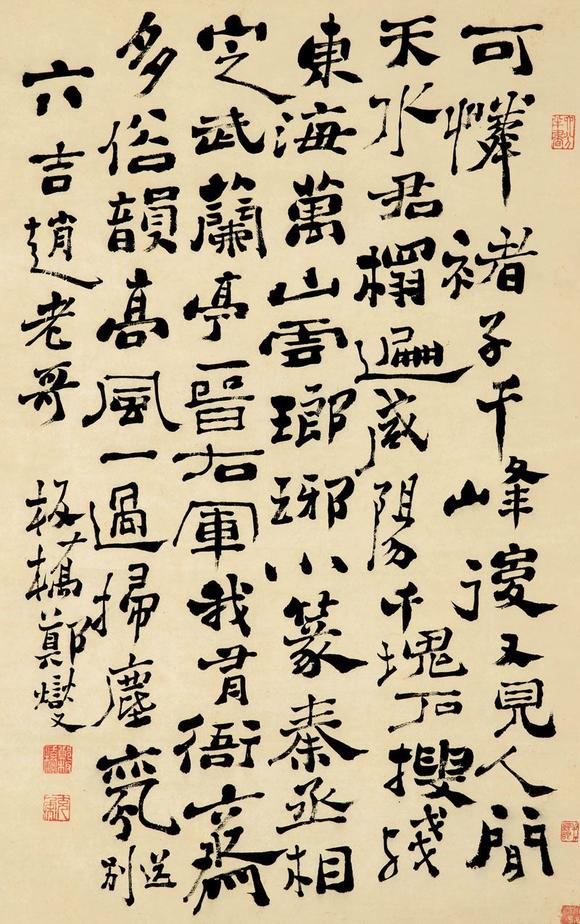 可憐褚子千峰後又見人間
天水君榻遍咸陽千塊石搜殘
東海萬山雲瑯琊小篆秦丞相
定武蘭亭晉右軍我有衙齋
多俗韻高風一過掃塵氛送別
六吉趙老哥板橋鄭燮